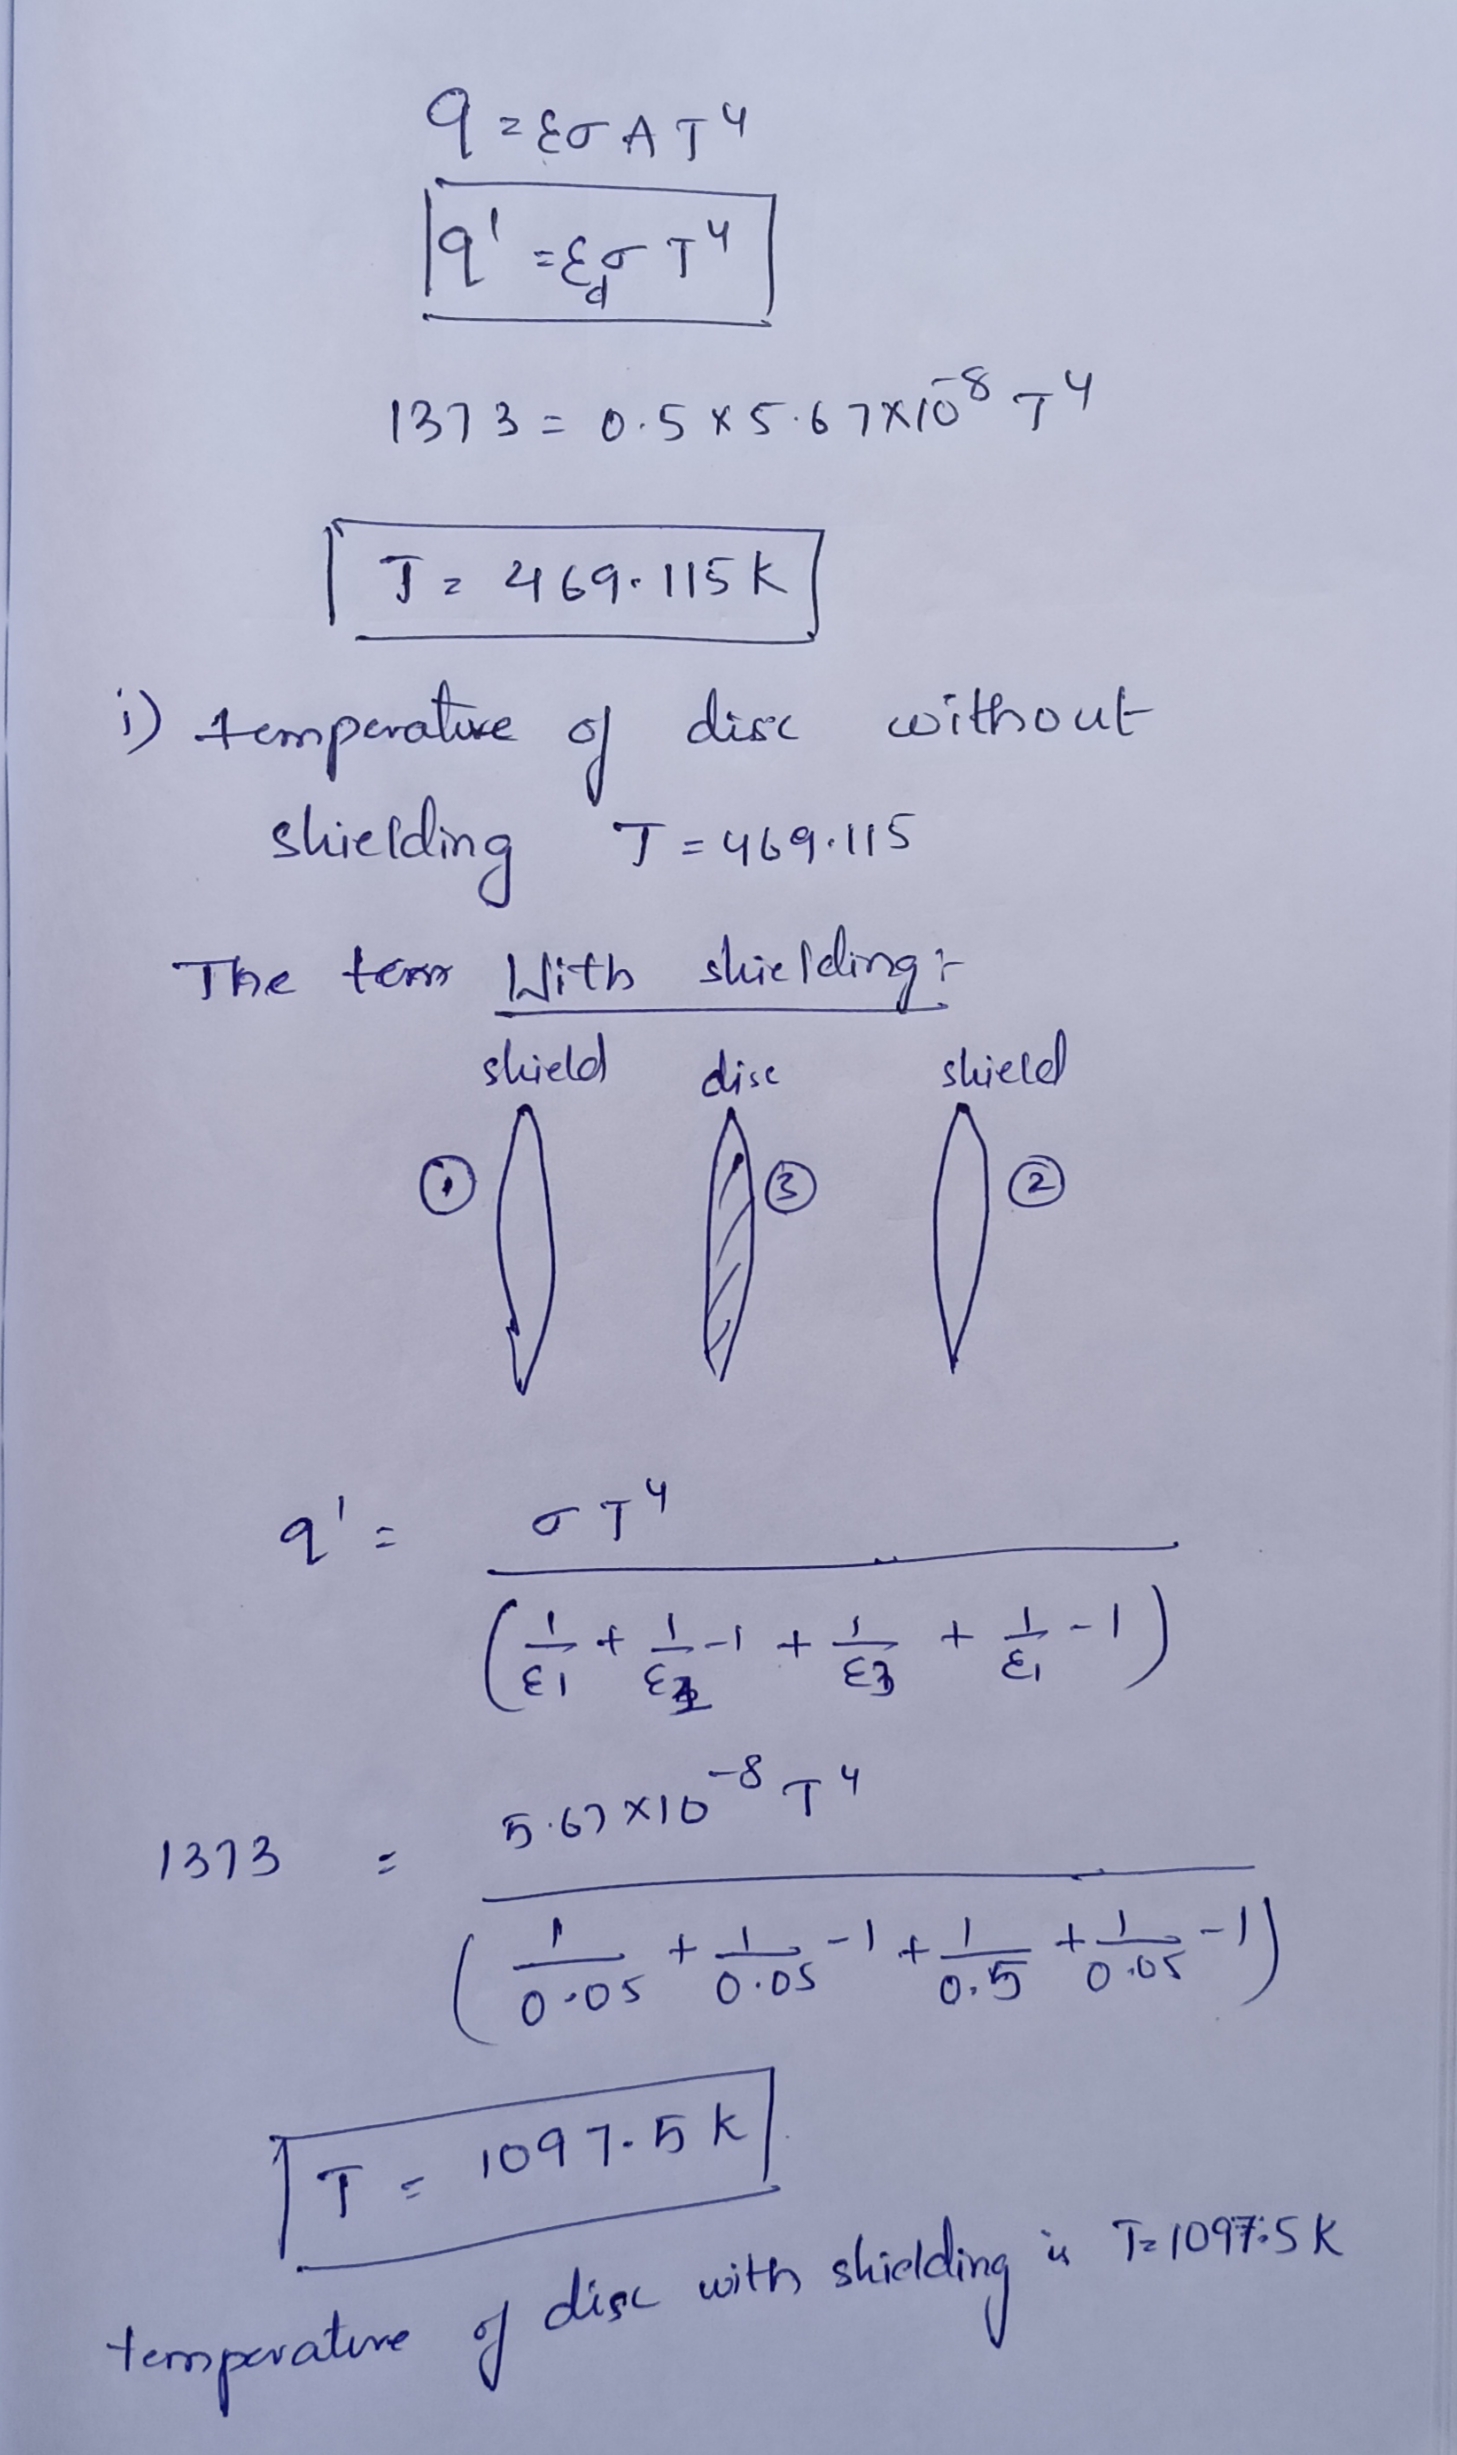 q = εσAT⁴
q' = ε_dσT⁴
1373 = 0.5 x 5.67x10⁻⁸ T⁴
T = 469.115K
i) temperature of disc without
shielding T = 469.115
The term With shielding :-
shield disc shield
① ③ ②
q' = σT⁴ / (1/ε1 + 1/ε2 -1 + 1/ε3 + 1/ε1 -1)
1373 = 5.67x10⁻⁸ T⁴ / (1/0.05 + 1/0.05 -1 + 1/0.5 + 1/0.05 -1)
T = 1097.5K
temperature of disc with shielding is T=1097.5K